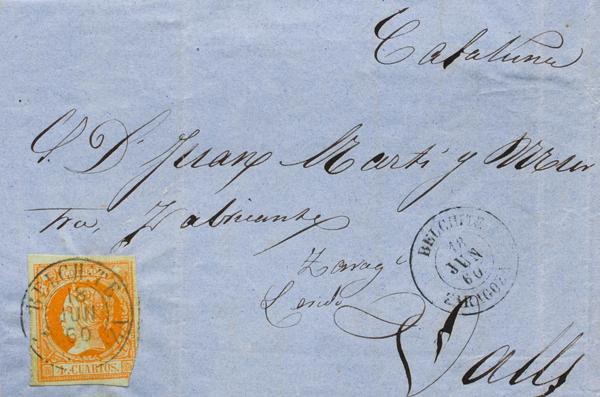 Cataluña
S. D. Juan Martí y
tra, Fabricante
Zarag
Lerida
Valls
BELCHITE
18
JUN
60
ZARAGOZA
BELCHITE
18
JUN
60
4 CUARTOS.